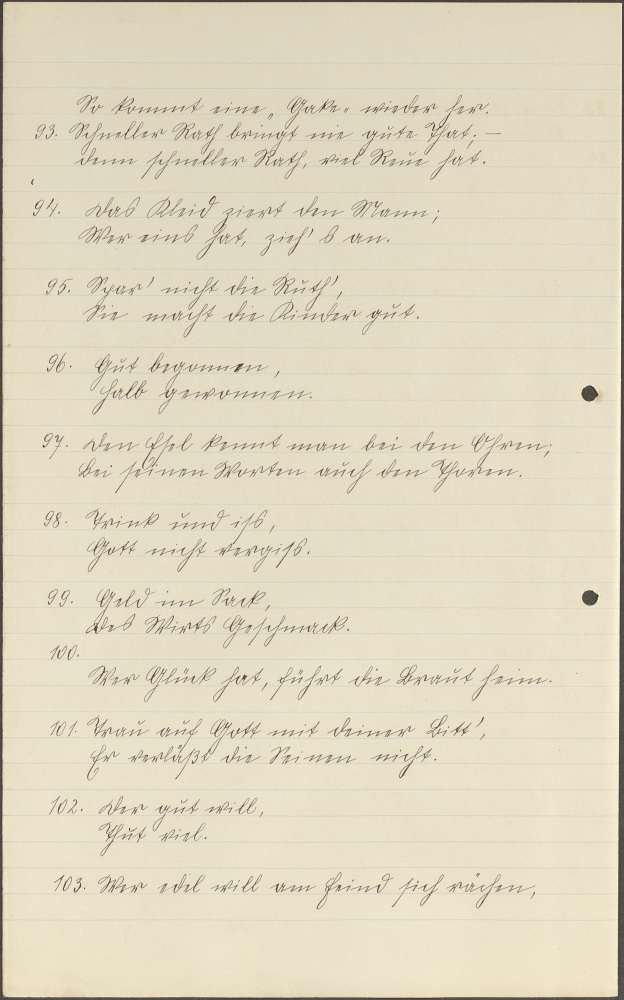 So kommt eine „Gake“ wieder her.
93. Schneller Rath bringt nie gute That, —
denn schneller Rath, viel Reue hat.
94. Das Kleid ziert den Mann;
Wer eins hat, zieh's an.
95. Spar' nicht die Ruth',
Sie macht die Kinder gut.
96. Gut begonnen,
halb gewonnen.
97. Den Esel kennt man bei den Ohren;
bei seinen Worten auch den Thoren.
98. Trink und iss,
Gott nicht vergiss.
99. Geld im Sack,
des Wirts Geschmack.
100.
Wer Glück hat, führt die Braut heim.
101. Trau auf Gott mit deiner Bitt',
Er verläßt die Seinen nicht.
102. Der gut will,
Thut viel.
103. Wer edel will am Feind sich rächen,